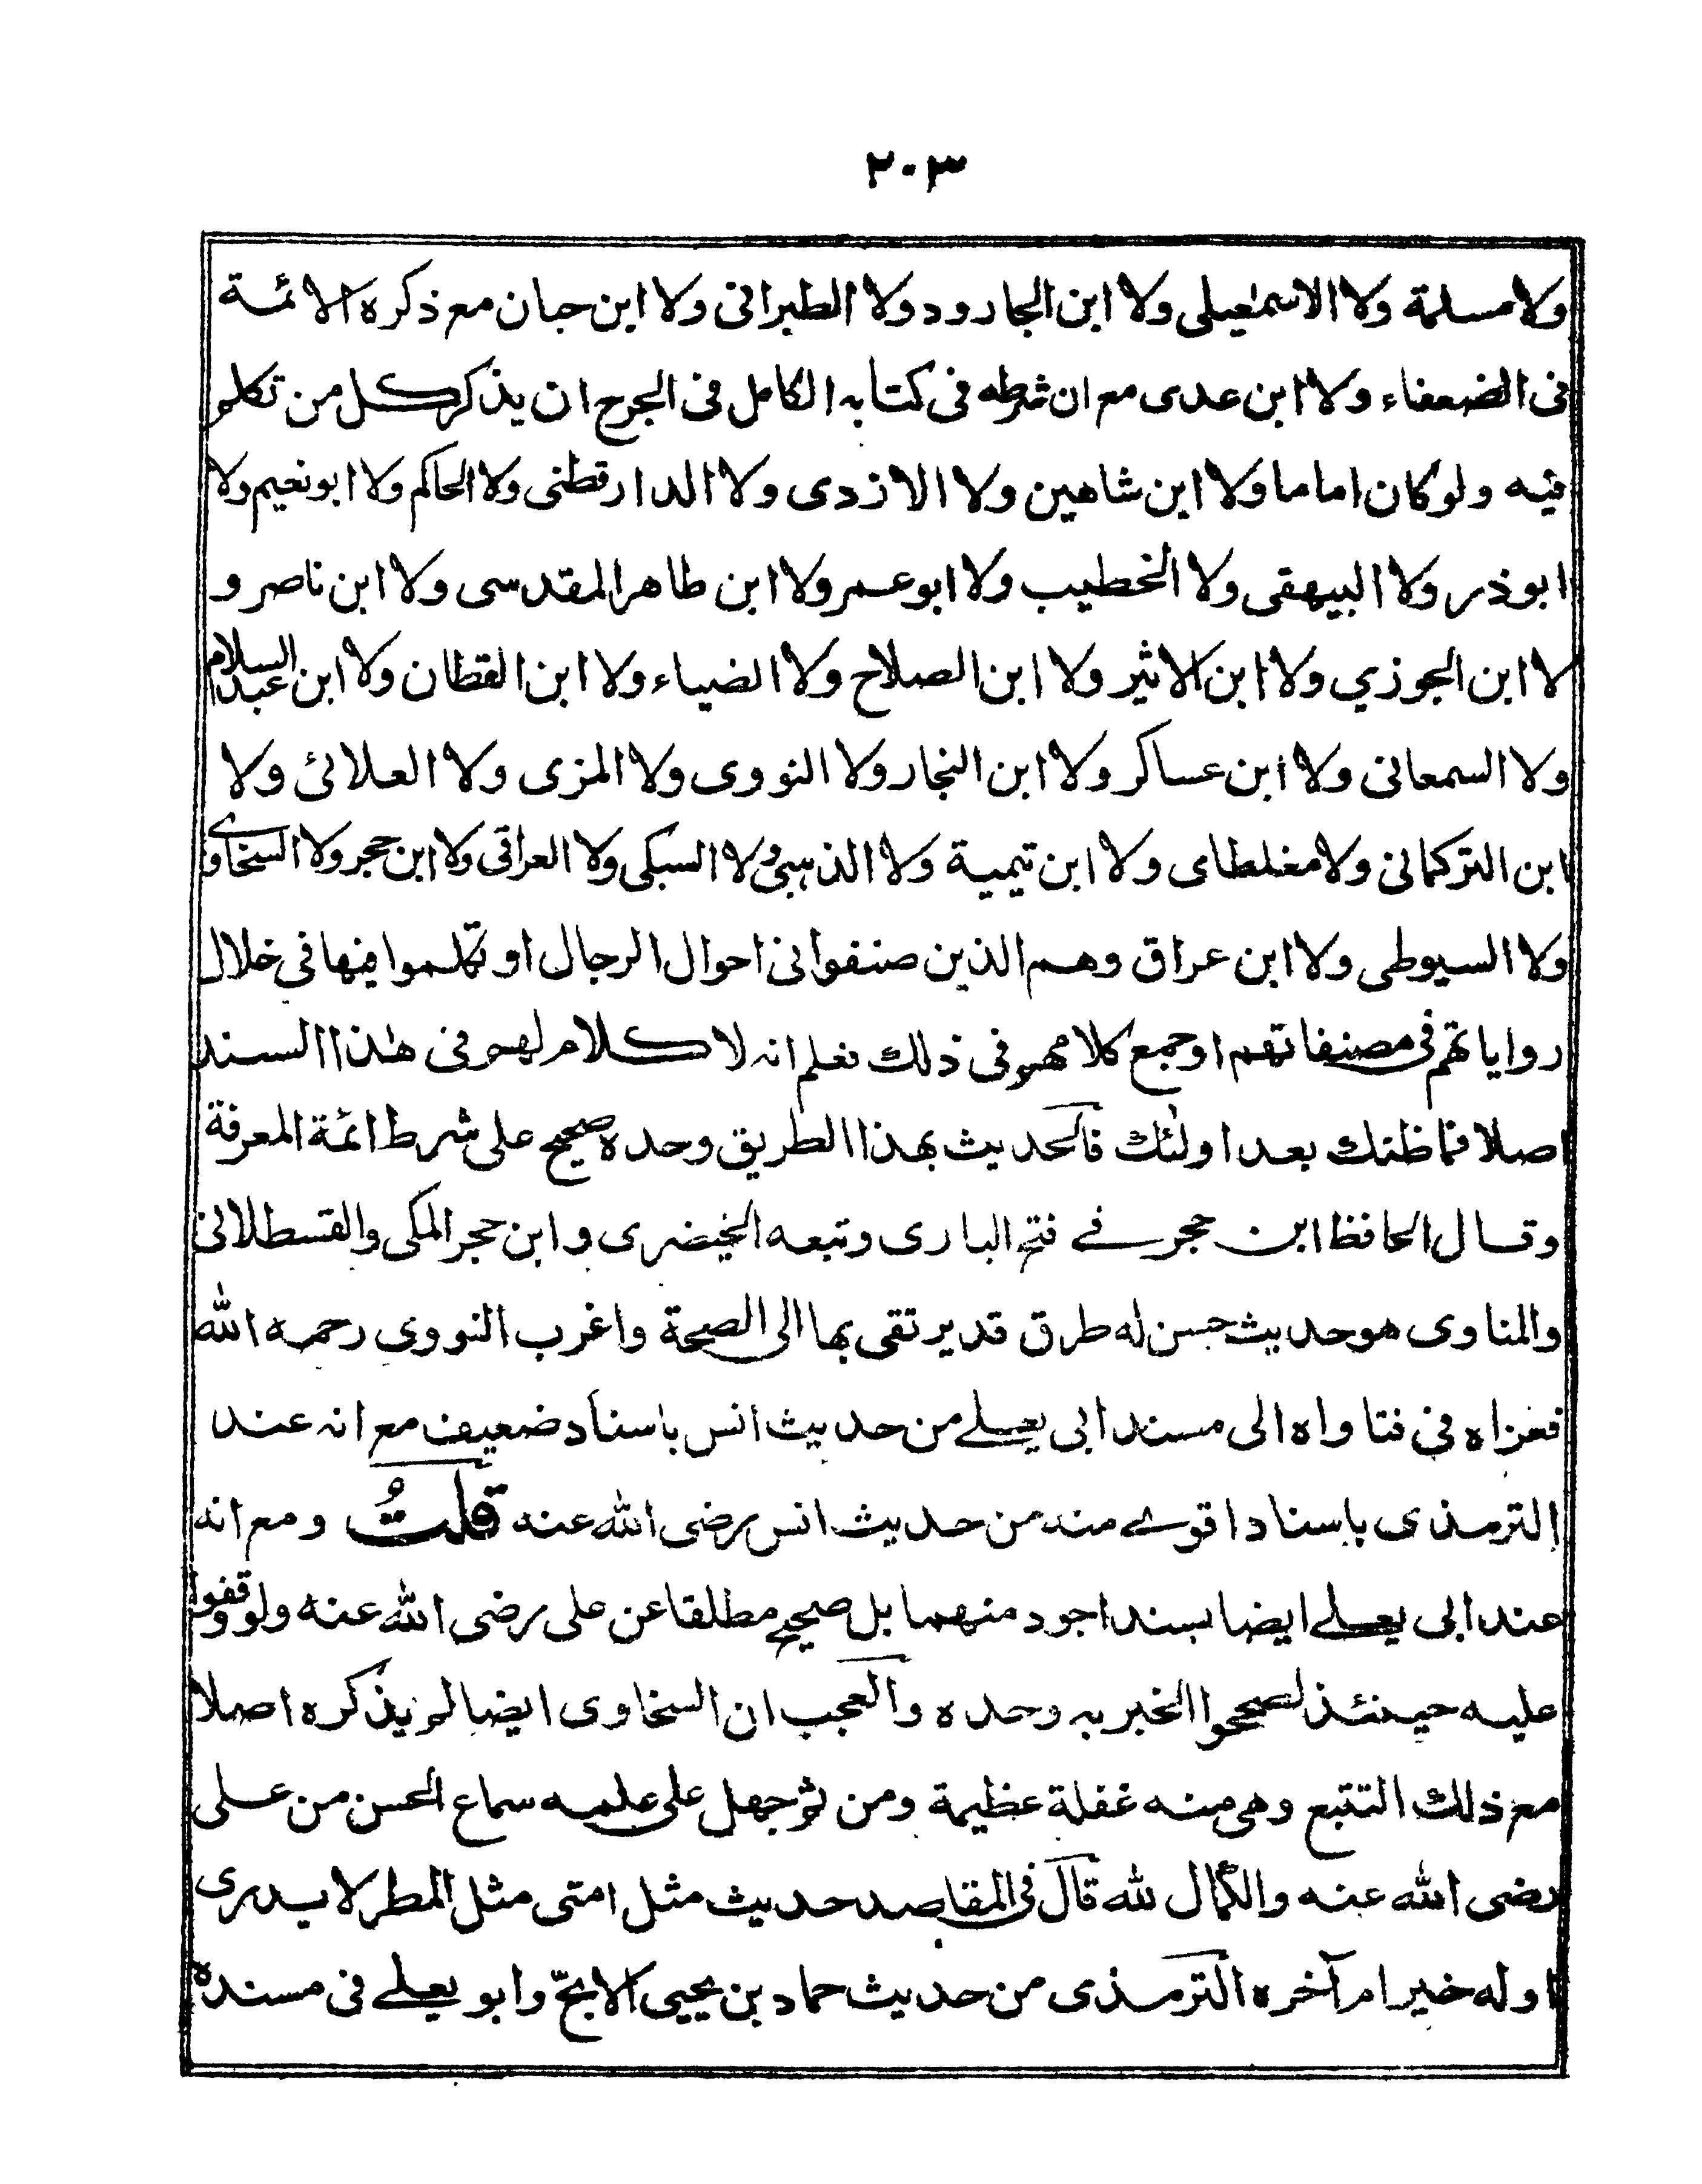 ٢٠٣
ولا مسلمة ولا الاسمٰعيلى ولا ابن الجارود ولا الطبرانى ولا ابن حبان مع ذكره الائمة
فى الضعفاء ولا ابن عدى مع ان شرطه فى كتابه الكامل فى الجرح ان يذكر كل من تكلم
فيه ولو كان اماما ولا ابن شاهين ولا الازدى ولا الدارقطنى ولا الحاكم ولا ابو نعيم ولا
ابو ذر ولا البيهقى ولا الخطيب ولا ابو عمر ولا ابن طاهر المقدسى ولا ابن ناصر و
لا ابن الجوزي ولا ابن الاثير ولا ابن الصلاح ولا الضياء ولا ابن القطان ولا ابن عبد السلام
ولا السمعانى ولا ابن عساكر ولا ابن النجار ولا النووى ولا المزى ولا العلائى ولا
ابن التركمانى ولا مغلطاى ولا ابن تيمية ولا الذهبى ولا السبكى ولا العراقى ولا ابن حجر ولا السخاوے
ولا السيوطى ولا ابن عراق وهم الذين صنفوا فى احوال الرجال او تكلموا فيها فى خلال
رواياتهم فى مصنفاتهم او جمع كلامهم فى ذلك نعلم انه لا كلام لهم فى هٰذا السند
اصلا فما ظنك بعد اولئك فالحديث بهذا الطريق وحده صحيح على شرط ائمة المعرفة
وقال الحافظ ابن حجر فے فتح البارى وتبعه الخيضرى وابن حجر المكى والقسطلانى
والمناوى هو حديث حسن له طرق قد يرتقى بها الى الصحة واغرب النووى رحمه الله
فعزاه فى فتاواه الى مسند ابى يعلے من حديث انس باسناد ضعيف مع انه عند
الترمذى باسناد اقوے منه من حديث انس رضى الله عنه قلتُ ومع انه
عند ابى يعلے ايضا بسند اجود منهما بل صحيح مطلقا عن على رضى الله عنه ولو وقفوا
عليه حينئذ لصححوا الخبر به وحده والعجب ان السخاوى ايضا لم يذكره اصلا
مع ذلك التتبع وهى منه غفلة عظيمة ومن ثم جهل على علمه سماع الحسن من على
رضى الله عنه والكمال لله قال فى المقاصد حديث مثل امتى مثل المطر لا يدرى
اوله خير ام آخره الترمذى من حديث حماد بن يحيى الابحّ وابو يعلے فى مسنده